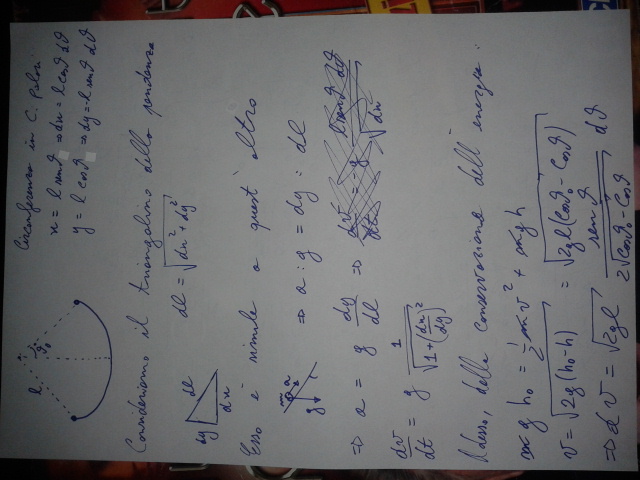 Circonferenza in C. Polari:
x = l senϑ ⇒ dx = l cosϑ dϑ
y = l cosϑ ⇒ dy = -l senϑ dϑ
l
ϑ₀
Consideriamo il triangolino della pendenza
dy dl dx
dl = √(dx² + dy²)
Esso è simile a quest'altro
g a ⇒ a : g = dy : dl
⇒ a = g dy/dl ⇒
dv/dt = g 1/√(1+(dx/dy)²)
Adesso, dalla conservazione dell'energia:
m g h₀ = ½ m v² + m g h
v = √(2g(h₀-h)) = √(2gl(cosϑ₀ - cosϑ))
⇒ dv = √(2gl) senϑ/(2√(cosϑ₀ - cosϑ)) dϑ